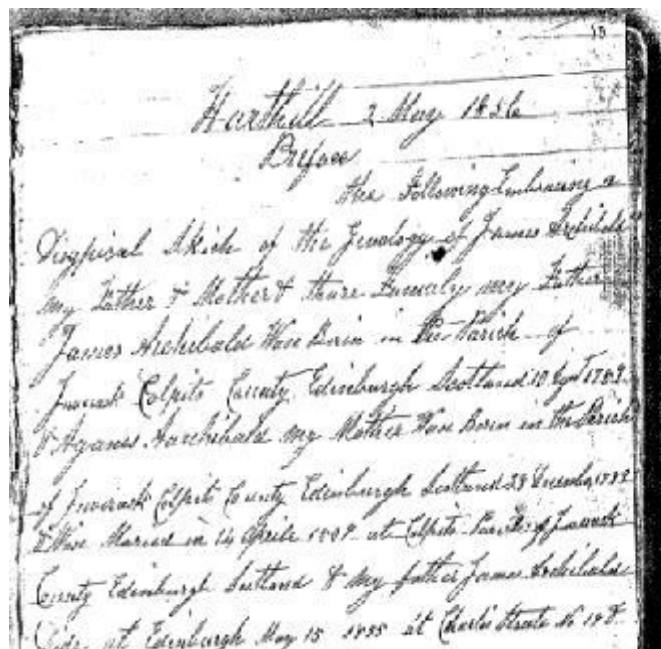 10
Harthill 2 May 1856
Preface
the Following Embracing a
Skich of the Jenology of James Archibald
my Father & Mother & thare Famaly my Father
James Archibald Wose Born in the Parish of
Colpits County Edinburgh Scotland 10
& Aganes Aarchibald my Mother Wose Born in the Parish
of Inverask Colpit County Edinburgh Scotland 28
& Wose Maried in 14 Aprile at Colpits Parish of
County Edinburgh Scotland & my father James Archibald
Died at Edinburgh May 15 1855 at Charles Streete No